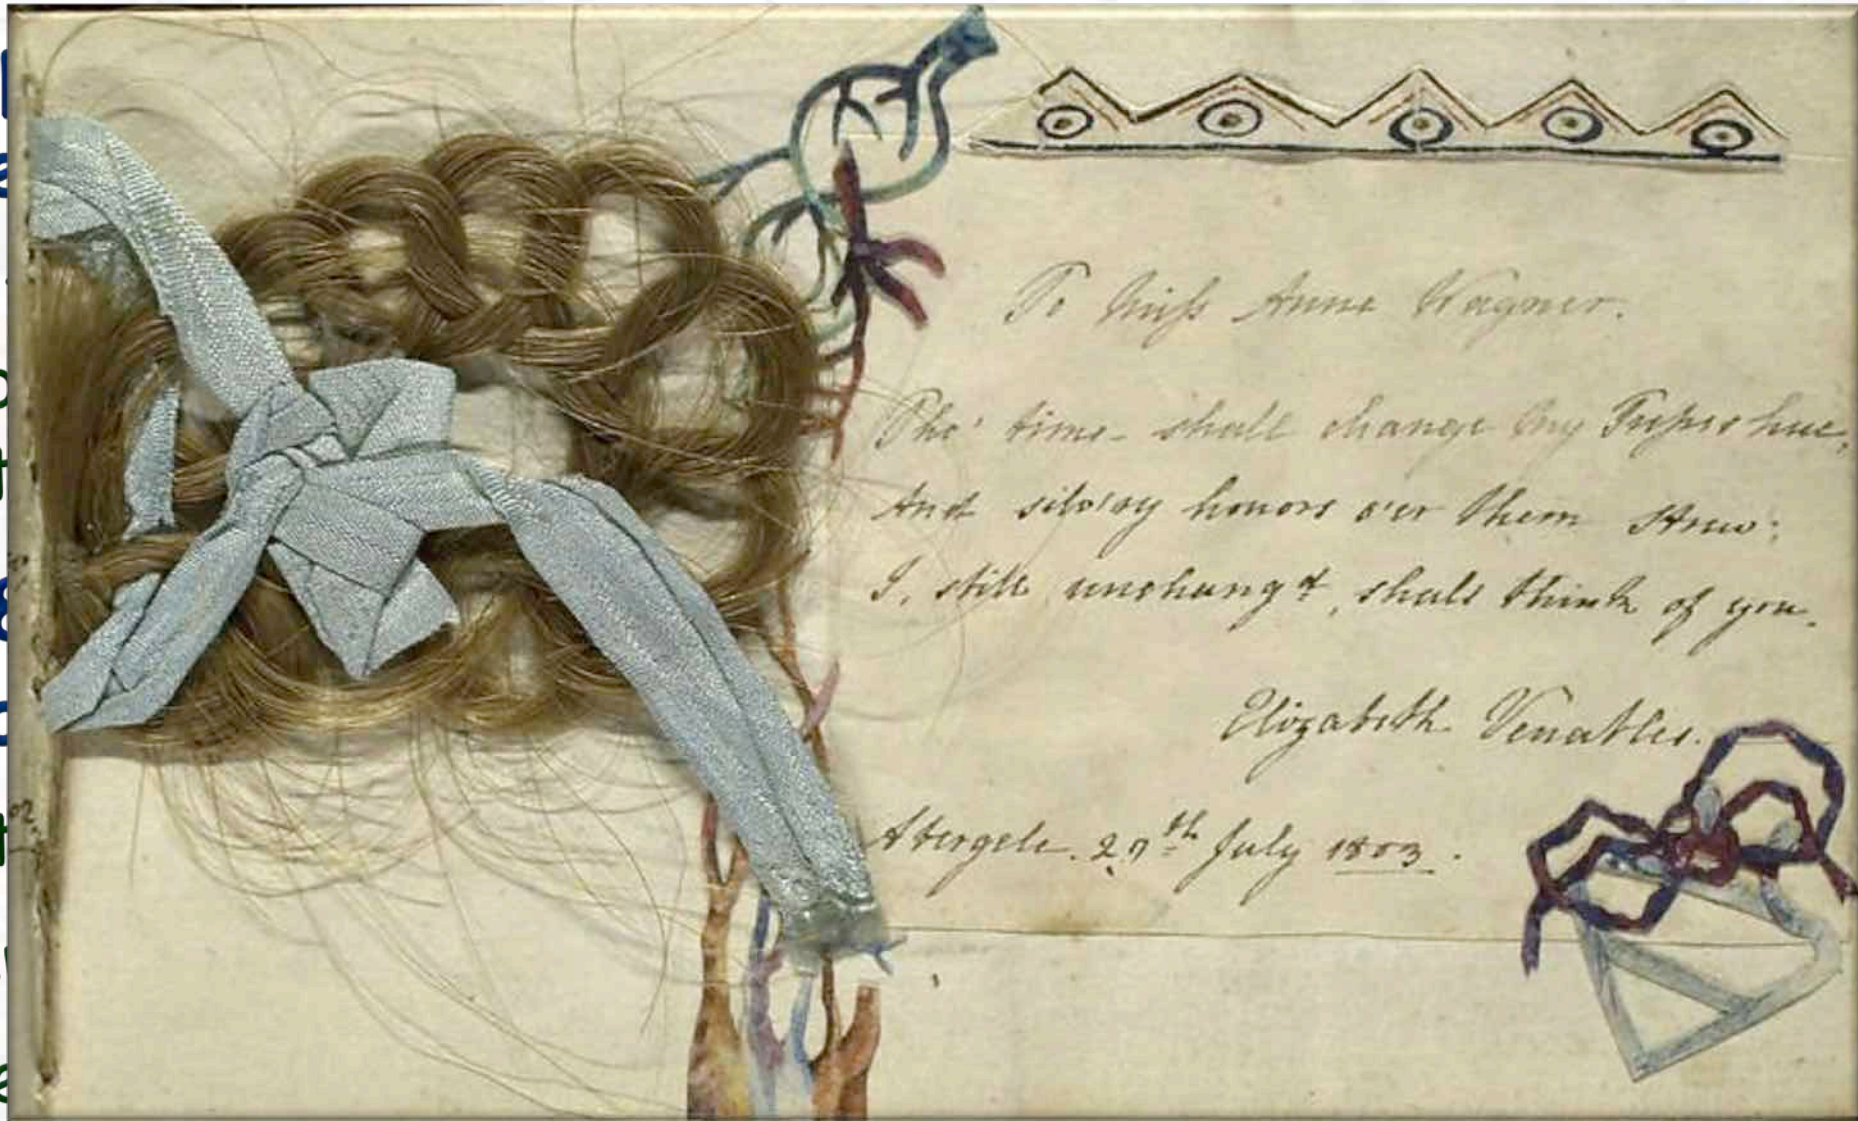 To Miſs Anne Wagner.
Tho' time shall change my Treſses hue,
And silv'ry honors o'er them strew;
I, still unchang'd, shall think of you.
Elizabeth Venables.
Abergele. 27th July 1803.